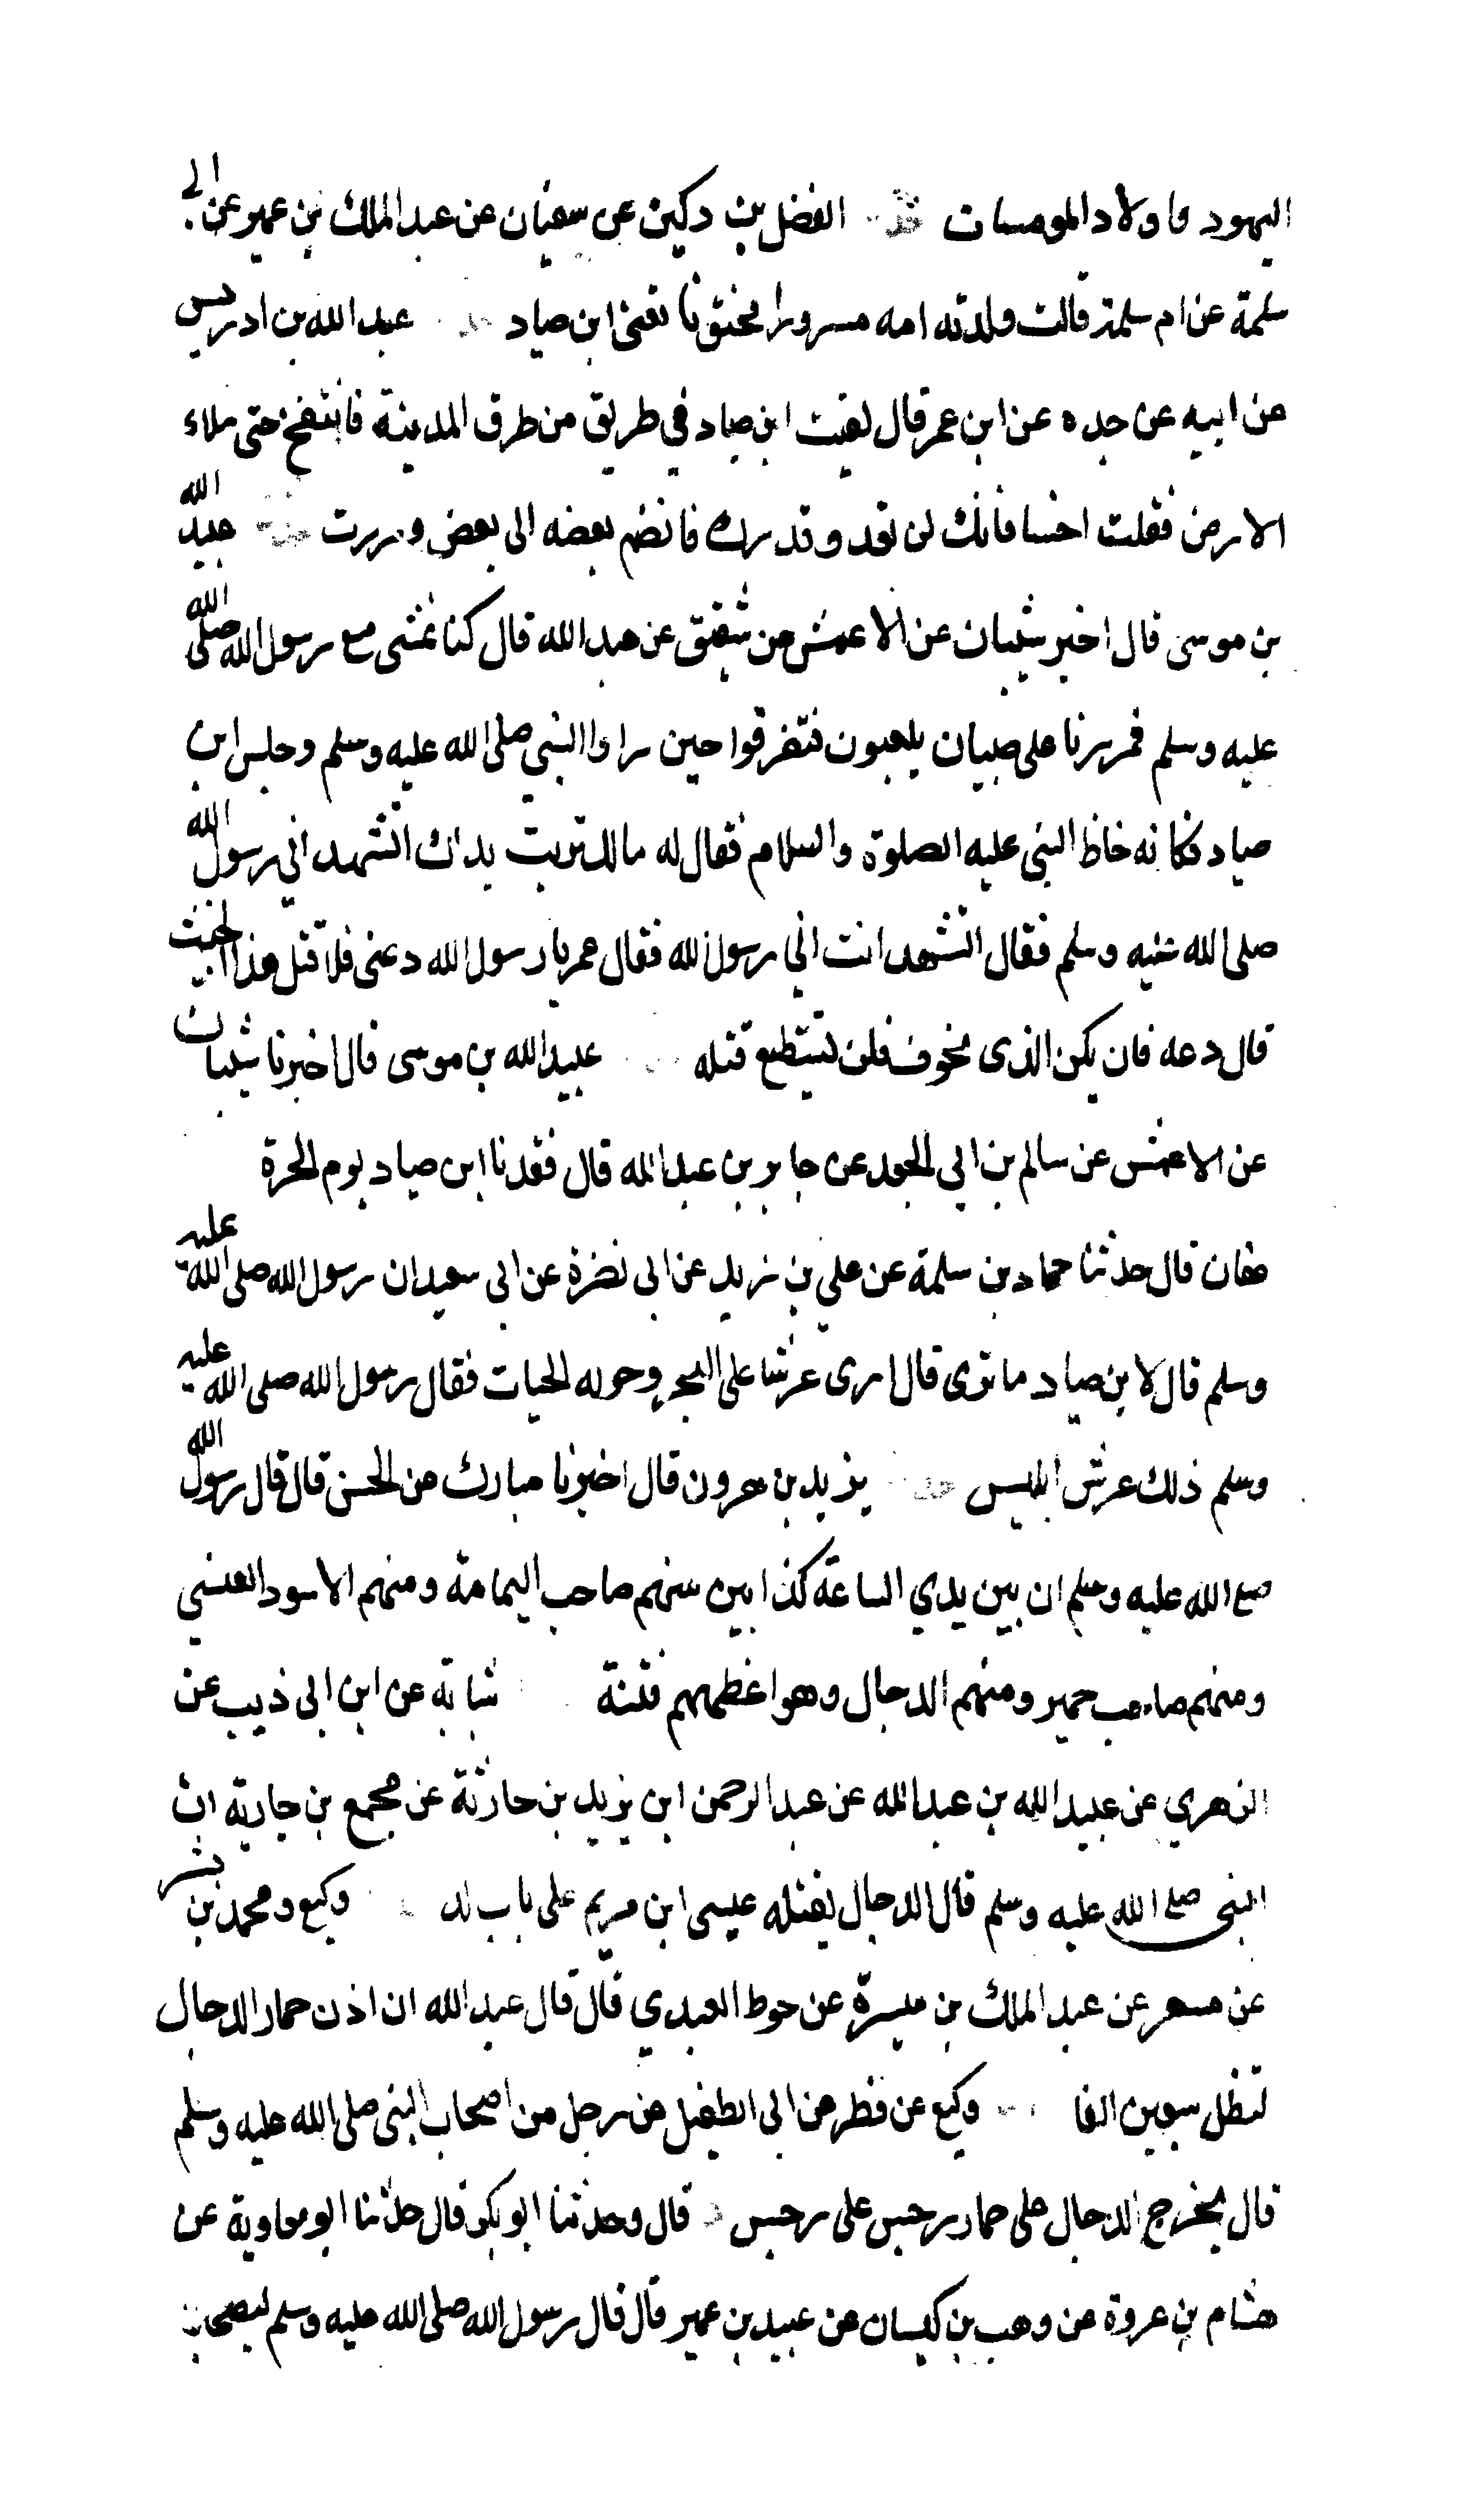 اليهود واولاد المومسات الفضل بن دكين عن سفيان عن عبد الملك بن عمير عن ابي
سلمة عن ام سلمة قالت ولدته امه مسرورا مختونا تعني ابن صياد عبد الله بن ادريس
عن ابيه عن جده عن ابن عمر قال لقيت ابن صياد في طريق من طرق المدينة فانتفخ حتى ملاء
الارض فقلت اخسا فانك لن تعد وقدرك فانضم بعضه الى بعض ومررت عبيد الله
بن موسى قال اخبر شيبان عن الاعمش عن شقيق عن عبد الله قال كنا نمشي مع رسول الله صلى الله
عليه وسلم فمررنا على صبيان يلعبون فتفرقوا حين راوا النبي صلى الله عليه وسلم وجلس ابن
صياد فكانه غاظ النبي عليه الصلوة والسلام فقال له مالك تربت يداك اتشهد اني رسول الله
صلى الله عليه وسلم فقال اتشهد انت اني رسول الله فقال عمر يا رسول الله دعني فلاقتل هذا الخبيث
قال دعه فان يكن الذى تخوف فلن تستطيع قتله عبيد الله بن موسى قال اخبرنا شيبان
عن الاعمش عن سالم بن ابي الجعد عن جابر بن عبد الله قال فقدنا ابن صياد يوم الحرة
عفان قال حدثنا حماد بن سلمة عن علي بن زيد عن ابي نضرة عن ابي سعيد ان رسول الله صلى الله عليه
وسلم قال لابن صياد ما ترى قال ارى عرشا على البحر وحوله الحيات فقال رسول الله صلى الله عليه
وسلم ذلك عرش ابليس يزيد بن هرون قال اخبرنا مبارك عن الحسن قال قال رسول الله
صلع الله عليه وسلم ان بين يدي الساعة كذابين منهم صاحب اليمامة ومنهم الاسود العنسي
ومنهم صاحب حمير ومنهم الدجال وهو اعظمهم فتنة شبابة عن ابن ابي ذيب عن
الزهري عن عبيد الله بن عبد الله عن عبد الرحمن ابن يزيد بن حارثة عن مجمع بن جارية ان
النبي صلع الله عليه وسلم قال الدجال يقتله عيسى ابن مريم على باب لد وكيع ومحمد بن بشر
عن مسعر عن عبد الملك بن ميسرة عن حوط العبدي قال قال عبد الله ان اذن حمار الدجال
لتظل سبعين الفا وكيع عن فطر عن ابي الطفيل عن رجل من اصحاب النبي صلى الله عليه وسلم
قال يخرج الدجال على حمار رجس على رجس قال وحدثنا ابو بكر قال حدثنا ابو معاوية عن
هشام بن عروة عن وهب بن كيسان عن عبيد بن عمير قال قال رسول الله صلى الله عليه وسلم ليصحبن